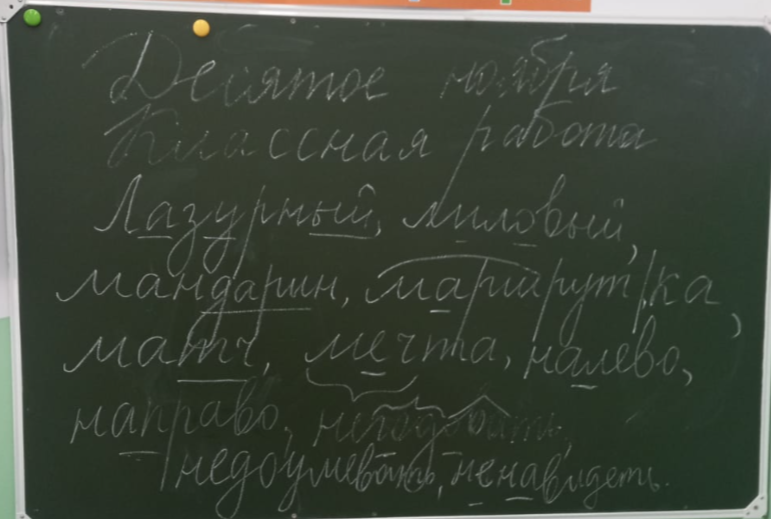 Десятое ноября
Классная работа
Лазурный, лиловый,
мандарин, маршрутка,
матч, мечта, налево,
направо, негодовать,
недоумевать, ненавидеть.